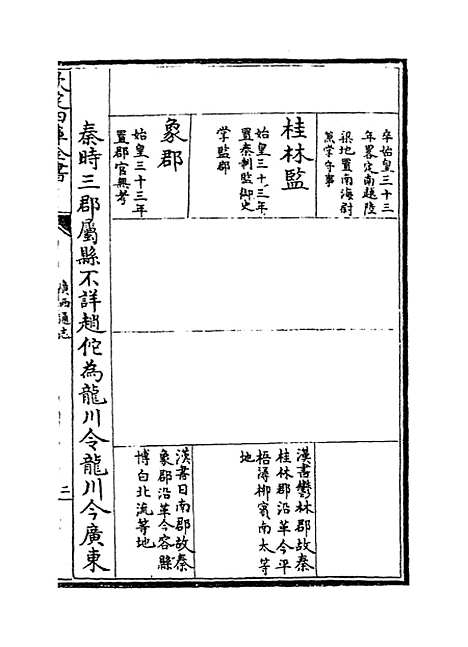 卒始皇三十三
年畧定南越陸
梁地置南海尉
兼掌守事
桂林監
始皇三十三年
置秦制監御史
掌監郡
漢書鬱林郡故秦
桂林郡沿革今平
梧潯柳賓南太等
地
象郡
始皇三十三年
置郡官無考
漢書日南郡故秦
象郡沿革今容縣
博白北流等地
秦時三郡屬縣不詳趙佗為龍川令龍川今廣東
欽定四庫全書
廣西通志
三